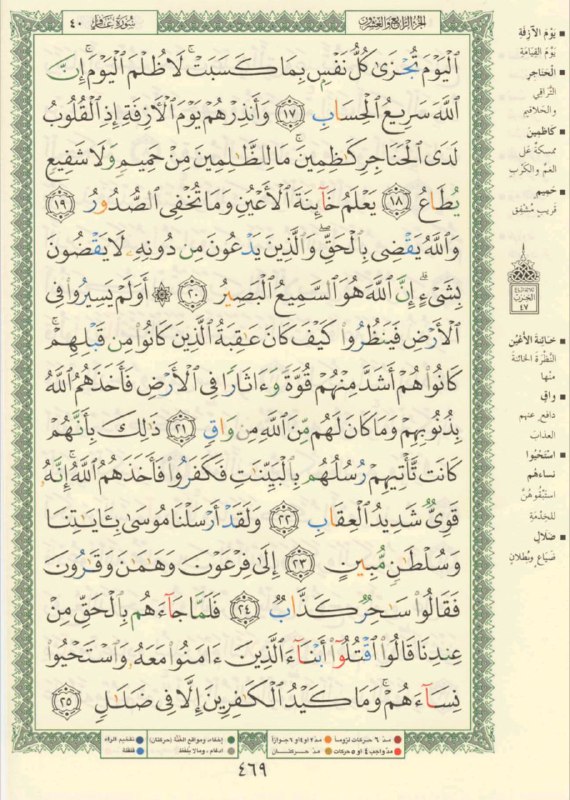 سُورَةُ غَافِر ٤٠
الجُزءُ الرَّابِعُ وَالعِشرُونَ
ٱلۡيَوۡمَ تُجۡزَىٰ كُلُّ نَفۡسِۭ بِمَا كَسَبَتۡۚ لَا ظُلۡمَ ٱلۡيَوۡمَۚ إِنَّ
ٱللَّهَ سَرِيعُ ٱلۡحِسَابِ ١٧ وَأَنذِرۡهُمۡ يَوۡمَ ٱلۡأٓزِفَةِ إِذِ ٱلۡقُلُوبُ
لَدَى ٱلۡحَنَاجِرِ كَٰظِمِينَۚ مَا لِلظَّٰلِمِينَ مِنۡ حَمِيمٖ وَلَا شَفِيعٖ
يُطَاعُ ١٨ يَعۡلَمُ خَآئِنَةَ ٱلۡأَعۡيُنِ وَمَا تُخۡفِي ٱلصُّدُورُ ١٩
وَٱللَّهُ يَقۡضِي بِٱلۡحَقِّۖ وَٱلَّذِينَ يَدۡعُونَ مِن دُونِهِۦ لَا يَقۡضُونَ
بِشَيۡءٍۗ إِنَّ ٱللَّهَ هُوَ ٱلسَّمِيعُ ٱلۡبَصِيرُ ٢٠ ۞ أَوَلَمۡ يَسِيرُواْ فِي
ٱلۡأَرۡضِ فَيَنظُرُواْ كَيۡفَ كَانَ عَٰقِبَةُ ٱلَّذِينَ كَانُواْ مِن قَبۡلِهِمۡۚ
كَانُواْ هُمۡ أَشَدَّ مِنۡهُمۡ قُوَّةٗ وَءَاثَارٗا فِي ٱلۡأَرۡضِ فَأَخَذَهُمُ ٱللَّهُ
بِذُنُوبِهِمۡ وَمَا كَانَ لَهُم مِّنَ ٱللَّهِ مِن وَاقٖ ٢١ ذَٰلِكَ بِأَنَّهُمۡ
كَانَت تَّأۡتِيهِمۡ رُسُلُهُم بِٱلۡبَيِّنَٰتِ فَكَفَرُواْ فَأَخَذَهُمُ ٱللَّهُۚ إِنَّهُۥ
قَوِيّٞ شَدِيدُ ٱلۡعِقَابِ ٢٢ وَلَقَدۡ أَرۡسَلۡنَا مُوسَىٰ بِـَٔايَٰتِنَا
وَسُلۡطَٰنٖ مُّبِينٍ ٢٣ إِلَىٰ فِرۡعَوۡنَ وَهَٰمَٰنَ وَقَٰرُونَ
فَقَالُواْ سَٰحِرٞ كَذَّابٞ ٢٤ فَلَمَّا جَآءَهُم بِٱلۡحَقِّ مِنۡ
عِندِنَا قَالُواْ ٱقۡتُلُوٓاْ أَبۡنَآءَ ٱلَّذِينَ ءَامَنُواْ مَعَهُۥ وَٱسۡتَحۡيُواْ
نِسَآءَهُمۡۚ وَمَا كَيۡدُ ٱلۡكَٰفِرِينَ إِلَّا فِي ضَلَٰلٖ ٢٥
■ يَوْمَ الآزِفَةِ
يَوْمَ القِيَامَةِ
■ الحَنَاجِرِ
التَّرَاقِي
والحَلَاقِيم
■ كَاظِمِينَ
مُمْسِكِينَ عَلَى
الغَمِّ وَالكَرْبِ
■ حَمِيمٍ
قَرِيبٍ مُشْفِقٍ
الحِزْبُ
٤٧
■ خَائِنَةَ الأَعْيُنِ
النَّظْرَةَ الخَائِنَةَ
مِنْهَا
■ وَاقٍ
دَافِعٍ عَنْهُم
العَذَابَ
■ اسْتَحْيُوا
نِسَاءَهُم
اسْتَبْقُوهُنَّ
لِلخِدْمَةِ
■ ضَلَالٍ
ضَيَاعٍ وَبُطْلَانٍ
مدّ ٦ حركات لزوماً
مدّ ٢ أو ٤ أو ٦ جوازاً
مدّ واجب ٤ أو ٥ حركات
مدّ حركتان
إخفاء، ومواقع الغُنَّة (حركتان)
إدغام، وما لا يُلفظ
تفخيم الراء
قلقلة
٤٦٩